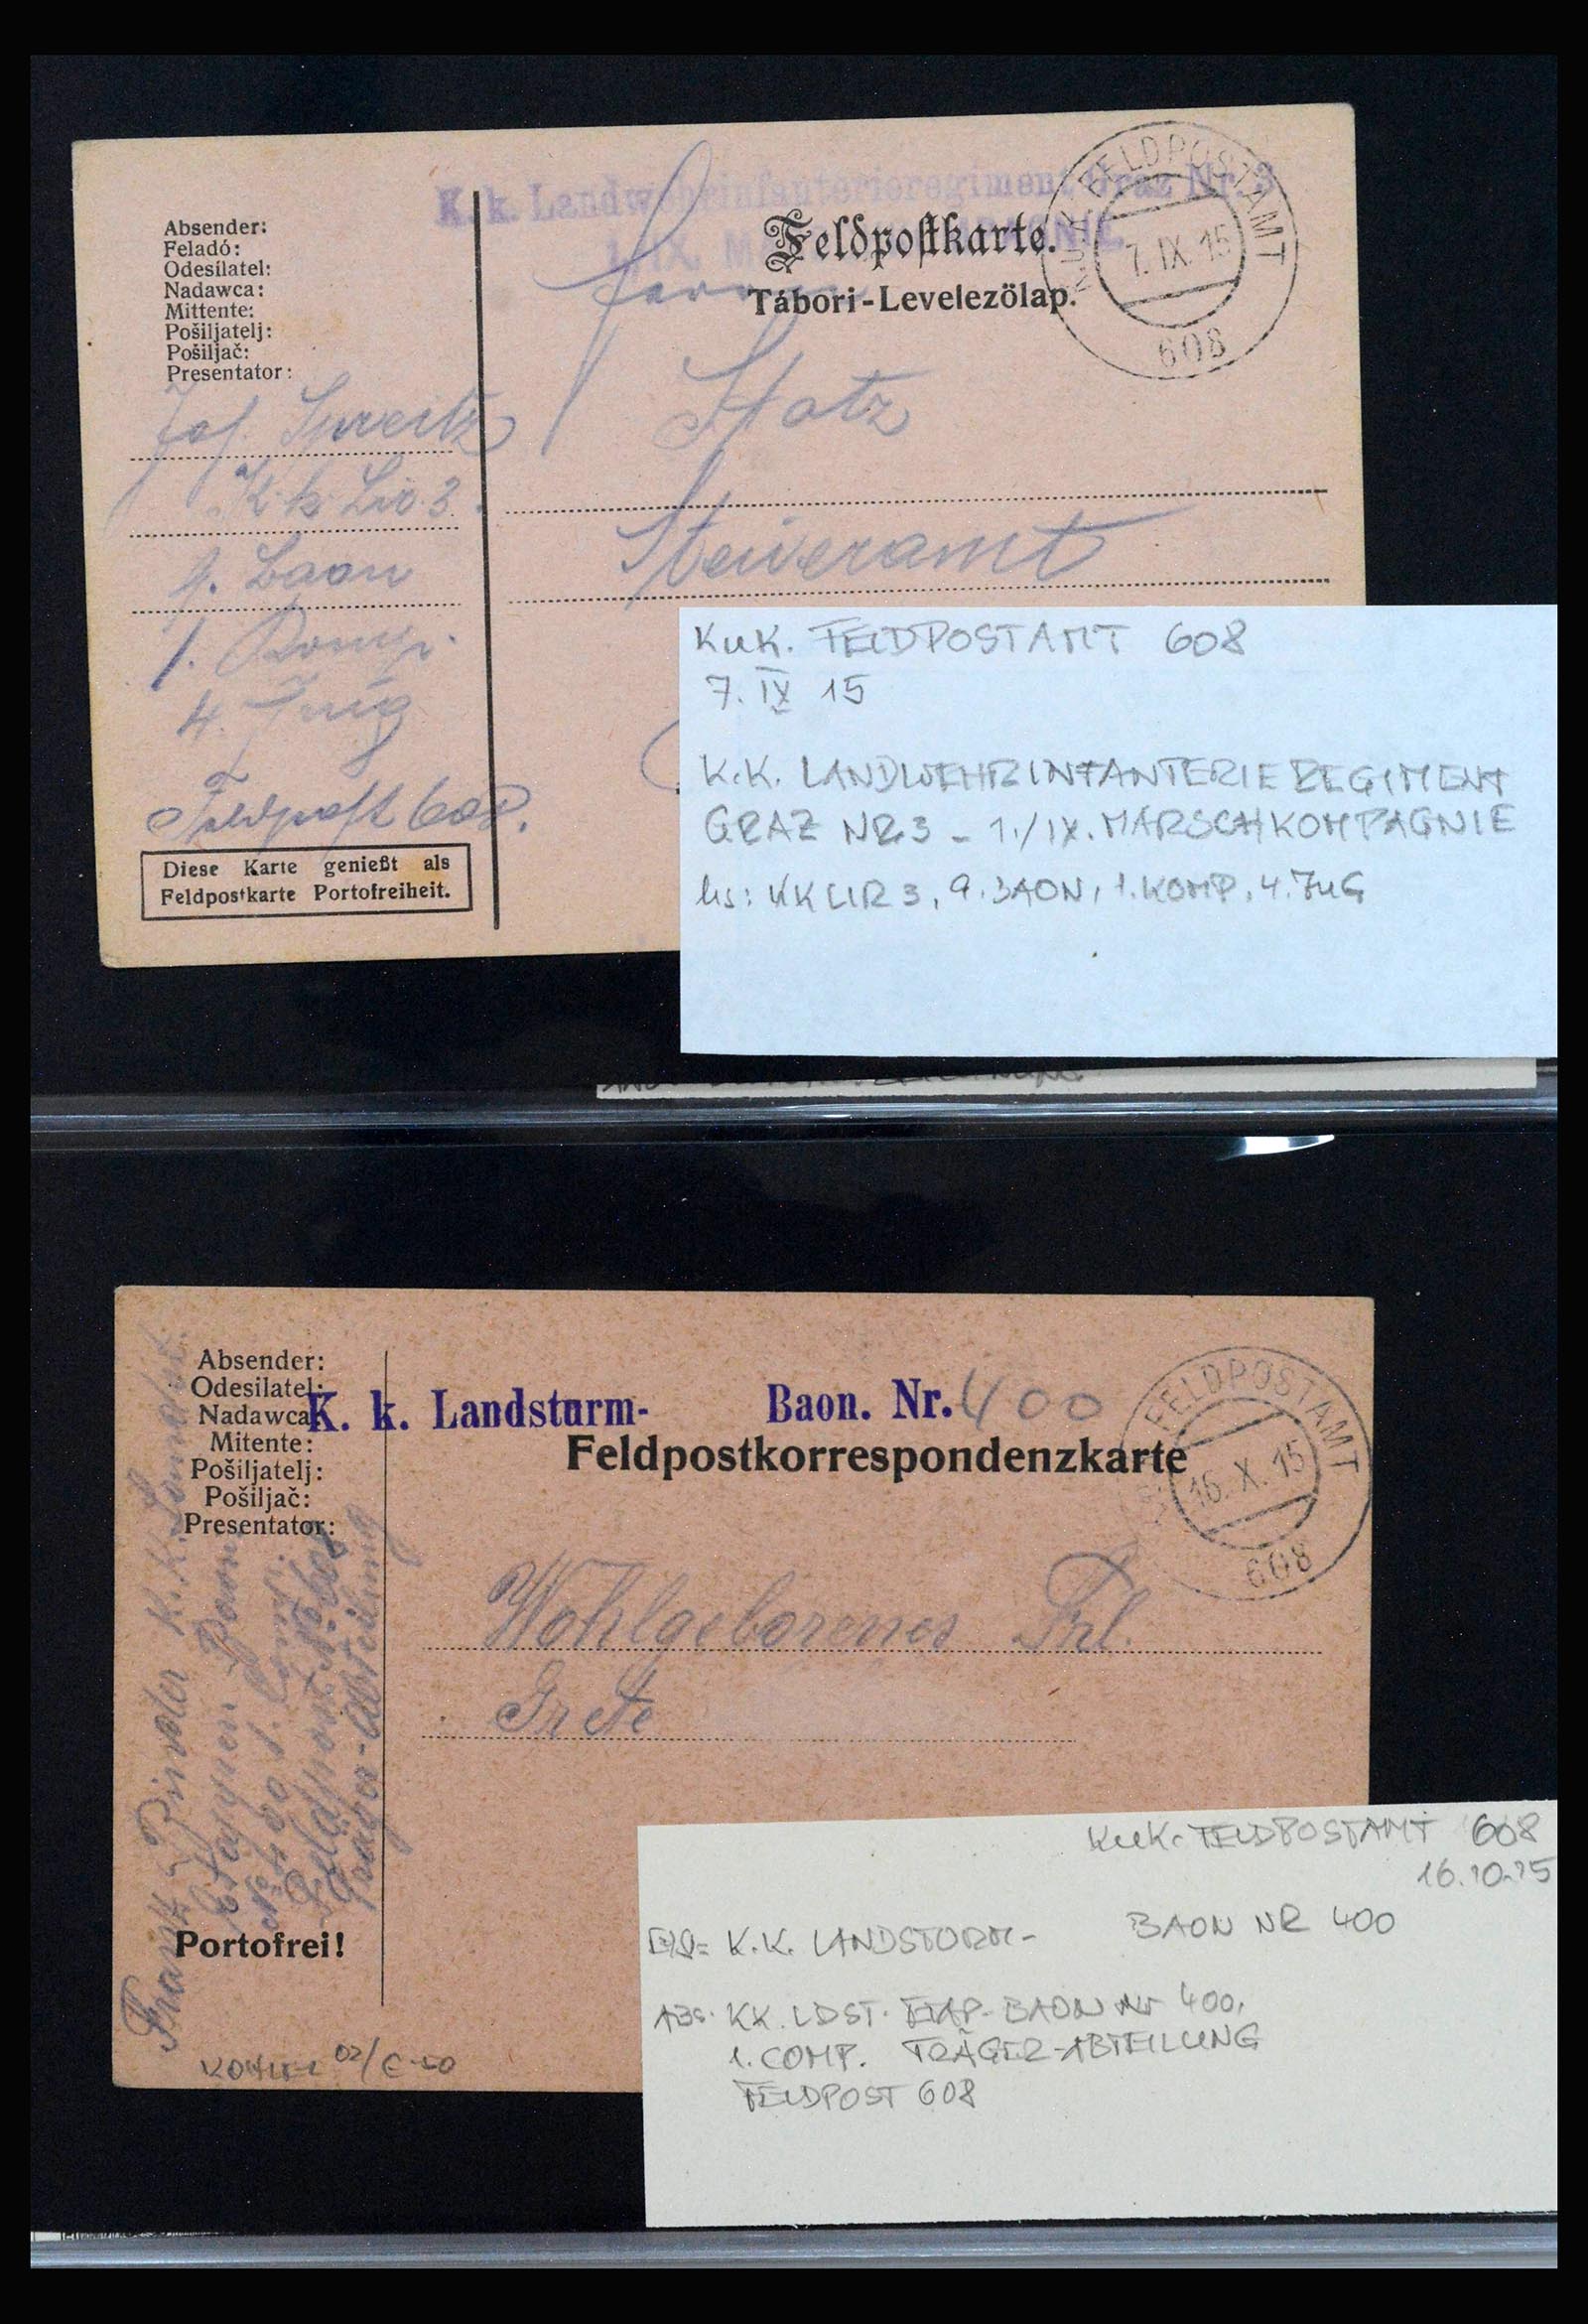 K. k. Landwehrinfanterieregiment Graz Nr. 3
1./IX.
FELDPOSTAMT
7. IX. 15
608
Feldpostkarte.
Tábori-Levelezölap.
Absender:
Feladó:
Odesílatel:
Nadawca:
Mittente:
Pošiljatelj:
Pošiljač:
Presentator:
Jos.
K. k. Lir. 3.
9. Baon
1. Komp.
4. Zug
Feldpost 608.
Herrn
Statz
Steueramt
Diese Karte genießt als
Feldpostkarte Portofreiheit.
KuK. FELDPOSTAMT 608
7. IX 15
K.K. LANDWEHRINFANTERIEREGIMENT
GRAZ NR3 - 1./IX. MARSCHKOMPAGNIE
hs: KK LIR 3, 9. BAON, 1. KOMP, 4. ZUG
Absender:
Odesilatel:
Nadawca
Mitente:
Pošiljatelj:
Pošiljač:
Presentator:
K. k. Landsturm- Baon. Nr. 400
Feldpostkorrespondenzkarte
FELDPOSTAMT
16. X. 15
608
Wohlgeborenes Frl.
Grete
Franz Pindter K. K. Landst.
Etappen Baon
No 400 1. Comp.
Feldpost No 608
Träger-Abteilung
Portofrei!
02/€ -50
KuK. FELDPOSTAMT 608
16.10.15
K.K. LANDSTURM- BAON NR 400
ABS. KK. LDST. ETAP-BAON Nr 400,
1. COMP. TRÄGER-ABTEILUNG
FELDPOST 608